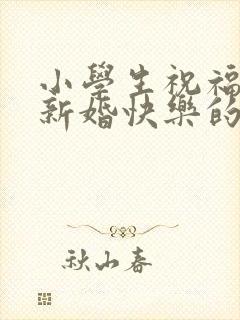 小學生祝福
新婚快樂的
秋山春